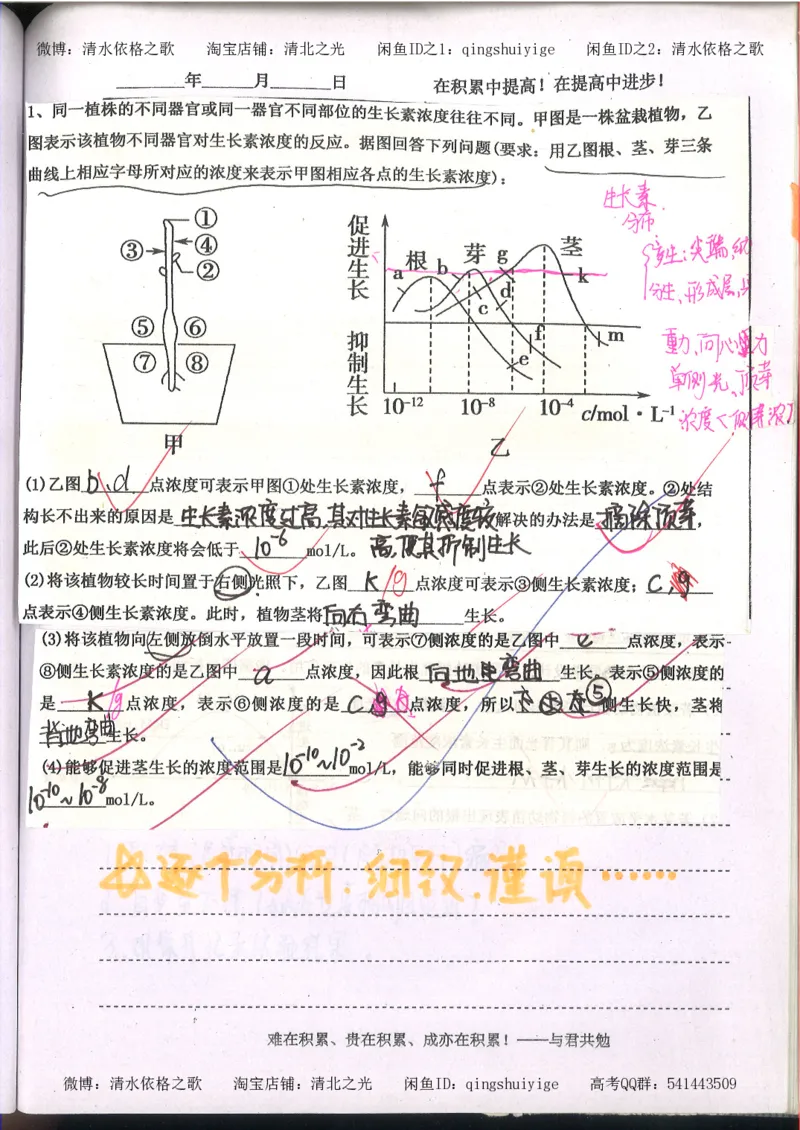 微博：清水依格之歌 淘宝店铺：清北之光 闲鱼ID之1：qingshuiyige 闲鱼ID之2：清水依格之歌
年 月 日 在积累中提高！在提高中进步！
1、同一植株的不同器官或同一器官不同部位的生长素浓度往往不同。甲图是一株盆栽植物，乙
图表示该植物不同器官对生长素浓度的反应。据图回答下列问题(要求：用乙图根、茎、芽三条
曲线上相应字母所对应的浓度来表示甲图相应各点的生长素浓度)：
生长素
分布
产生：尖端
分生、形成层
重力、向心力
单侧光、顶芽
① ② ③ ④ ⑤ ⑥ ⑦ ⑧
甲
促进生长
抑制生长
根 芽 茎
a b c d e f g k m
10⁻¹² 10⁻⁸ 10⁻⁴ c/mol·L⁻¹
乙
(1)乙图b、d点浓度可表示甲图①处生长素浓度，f点表示②处生长素浓度。②处结
构长不出来的原因是生长素浓度过高，其对生长素敏感度较解决的办法是摘除顶芽，
此后②处生长素浓度将会低于10⁻⁶mol/L。高，使其抑制生长
(2)将该植物较长时间置于右侧光照下，乙图k/g点浓度可表示③侧生长素浓度；c，g
点表示④侧生长素浓度。此时，植物茎将向右弯曲生长。
(3)将该植物向左侧放倒水平放置一段时间，可表示⑦侧浓度的是乙图中e点浓度，表示
⑧侧生长素浓度的是乙图中a点浓度，因此根向地弯曲生长。表示⑤侧浓度的
是k/g点浓度，表示⑥侧浓度的是c，g点浓度，所以⑤侧生长快，茎将
背地弯曲生长。
(4)能够促进茎生长的浓度范围是10⁻¹⁰~10⁻²mol/L，能够同时促进根、茎、芽生长的浓度范围是
10⁻¹⁰~10⁻⁸mol/L。
逐个分析，细致，谨慎……
难在积累、贵在积累、成亦在积累！——与君共勉
微博：清水依格之歌 淘宝店铺：清北之光 闲鱼ID：qingshuiyige 高考QQ群：541443509